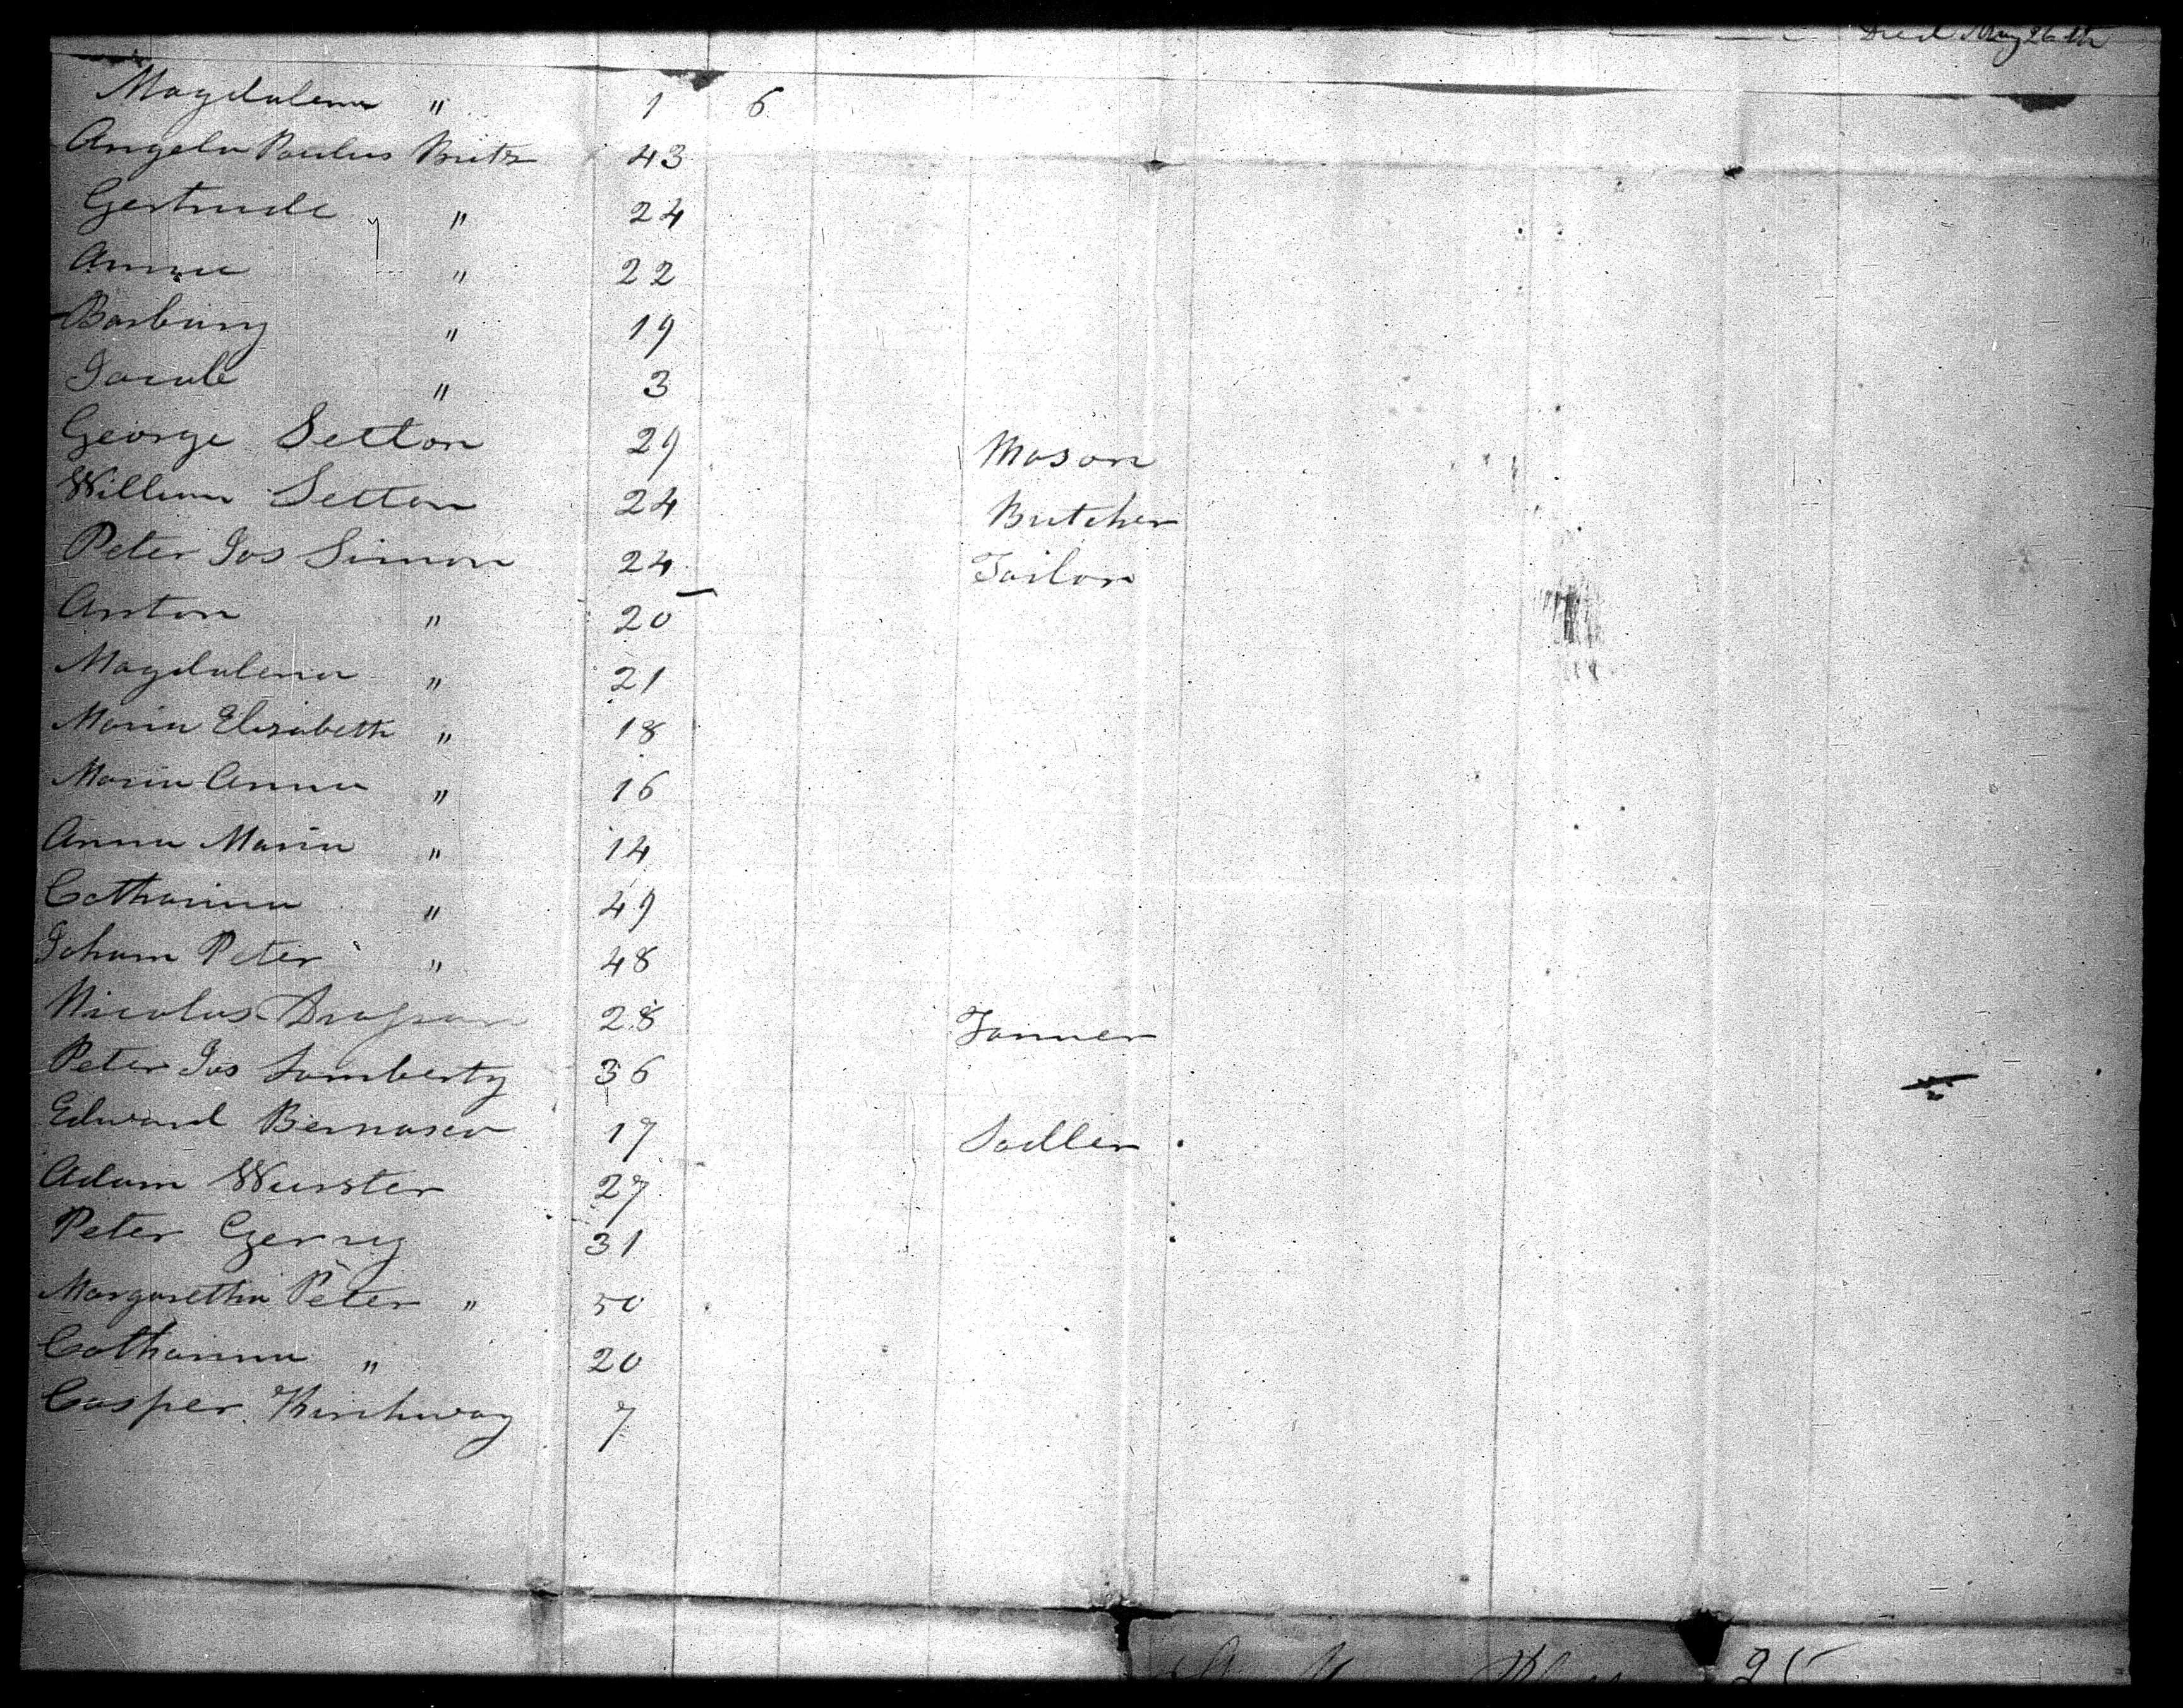 Died Aug 26th
Magdalena " 1 6
Angela Paulus Butz 43
Gertrude " 24
Anna " 22
Barbary " 19
Jacob " 3
George Setton 29 Mason
William Setton 24 Butcher
Peter Jos Simon 24 Tailor
Anton " 20
Magdalena " 21
Maria Elizabeth " 18
Maria Anna " 16
Anna Maria " 14
Catharina " 49
Johann Peter " 48
Nicolas 28 Tanner
Peter Jos Lamberty 36
Edward Bernasco 17 Sadler
Adam Wurster 27
Peter Czerny 31
Margaretha Peter " 50
Catharina " 20
Casper Kirchway 7